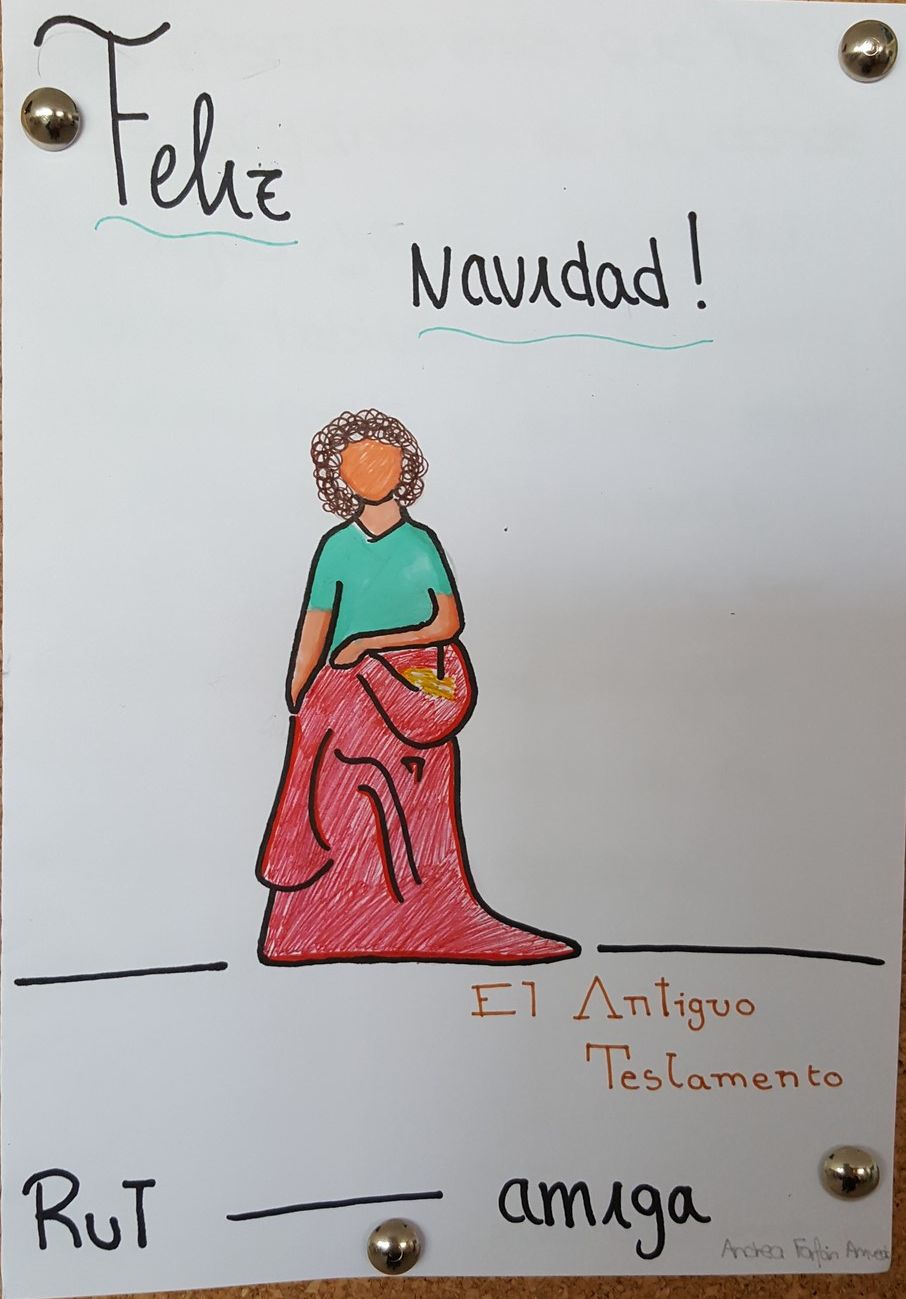 Feliz
Navidad!
El Antiguo
Testamento
RuT — amiga
Andrea Farfán